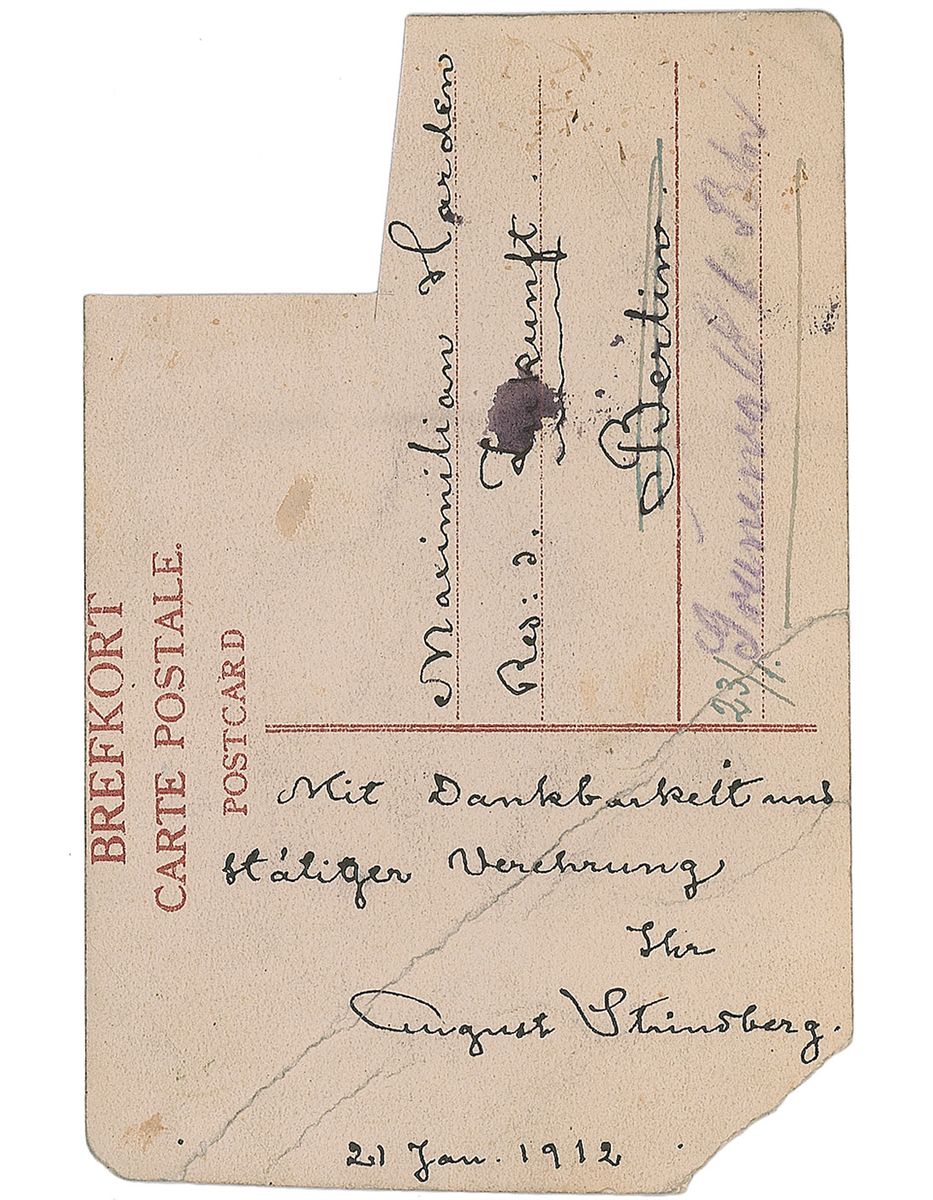 BREFKORT
CARTE POSTALE.
POSTCARD
Maximilian Harden
Red: d. Zukunft.
Berlin.
23/1.
Mit Dankbarkeit und
stätiger Verehrung
Ihr
August Strindberg.
21 Jan. 1912